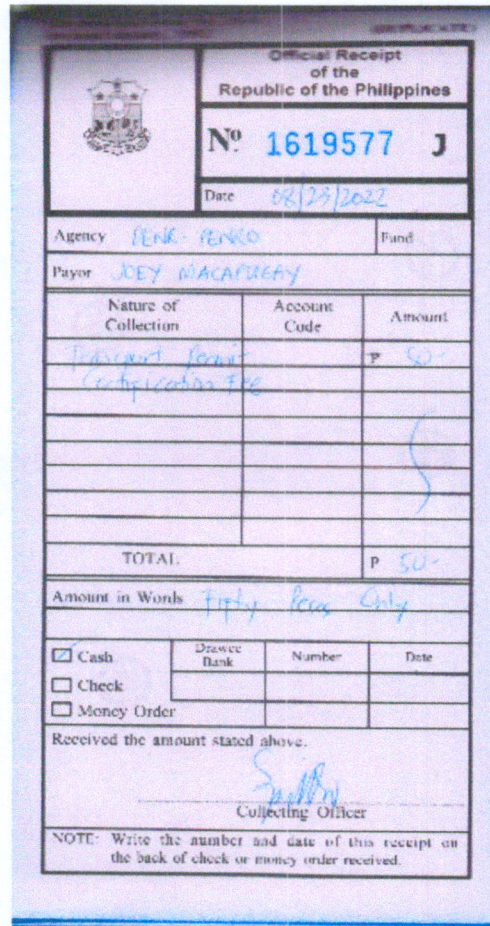 (DUPLICATE)
Official Receipt
of the
Republic of the Philippines
Nº 1619577 J
Date 08/23/2022
Agency DENR-PENRO Fund
Payor JOEY MACAPUGAY
Nature of Collection Account Code Amount
Transport Permit ₱ 50-
Certification Fee
TOTAL ₱ 50-
Amount in Words Fifty Pesos Only
Cash Drawee Bank Number Date
Check
Money Order
Received the amount stated above.
Collecting Officer
NOTE: Write the number and date of this receipt on
the back of check or money order received.